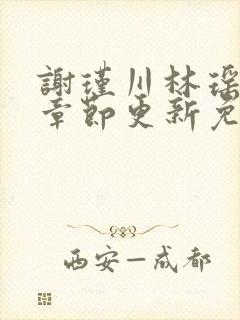 謝瑾川林瑶
章節更新免
西安—成都